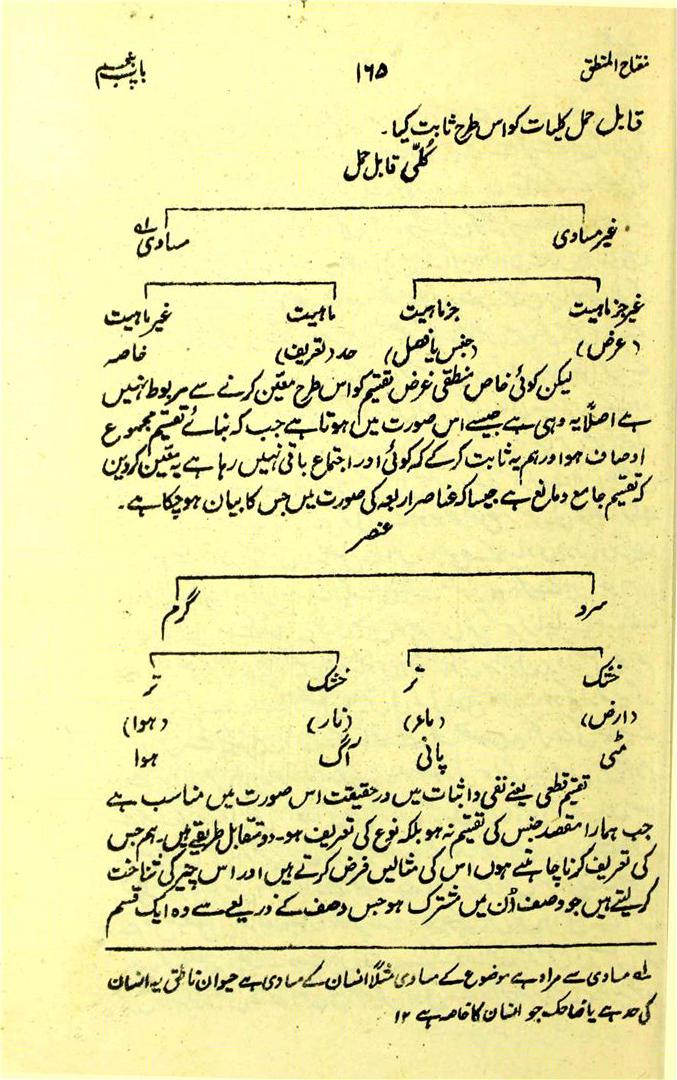 مفتاح المنطق ۱۶۵ باب پنجم
قابلِ حمل کلیات کو اس طرح ثابت کیا۔
کُلّی قابل حمل
غیر مساوی مساوی لہ
غیر جز ماہیت جز ماہیت ماہیت غیر ماہیت
(عرض) (جنس یا فصل) حد (تعریف) خاصہ
لیکن کوئی خاص منطقی غرض تقسیم کو اس طرح معیّن کرنے سے مربوط نہیں
ہے اصلاً یہ وہی ہے جیسے اس صورت میں ہوتا ہے جب کہ بنائے تقسیم مجموع
اوصاف ہو اور ہم یہ ثابت کر کے کہ کوئی اور اجتماع باقی نہیں رہا ہے یہ معیّن کر دیں
کہ تقسیم جامع و مانع ہے جیسا کہ عناصر اربعہ کی صورت میں جس کا بیان ہو چکا ہے۔
عنصر
سرد گرم
خشک تر خشک تر
(ارض) (ماء) (نار) (ہوا)
مٹی پانی آگ ہوا
تقسیم قطعی یعنے نفی و اثبات میں درحقیقت اس صورت میں مناسب ہے
جب ہمارا مقصد جنس کی تقسیم نہ ہو بلکہ نوع کی تعریف ہو۔ دو متقابل طریقے ہیں۔ ہم جس
کی تعریف کرنا چاہتے ہوں اس کی مثالیں فرض کرتے ہیں اور اس چیز کی شناخت
کر لیتے ہیں جو وصف اُن میں مشترک ہو جس وصف کے ذریعے سے وہ ایک قسم
لہ مساوی سے مراد ہے موضوع کے مساوی مثلاً انسان کے مساوی ہے حیوان ناطق یہ انسان
کی حد ہے یا ضاحک جو انسان کا خاصہ ہے ۱۲